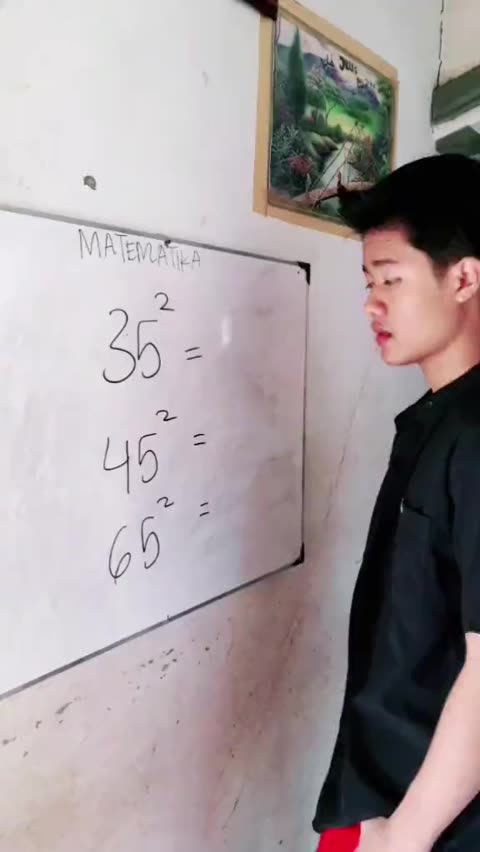 MATEMATIKA
35² =
45² =
65² =